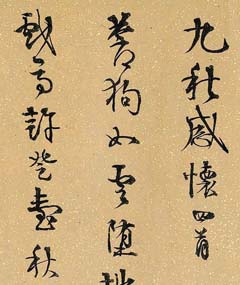 九秋感懷四首
蒼狗如雲墮地
戲馬登臺秋